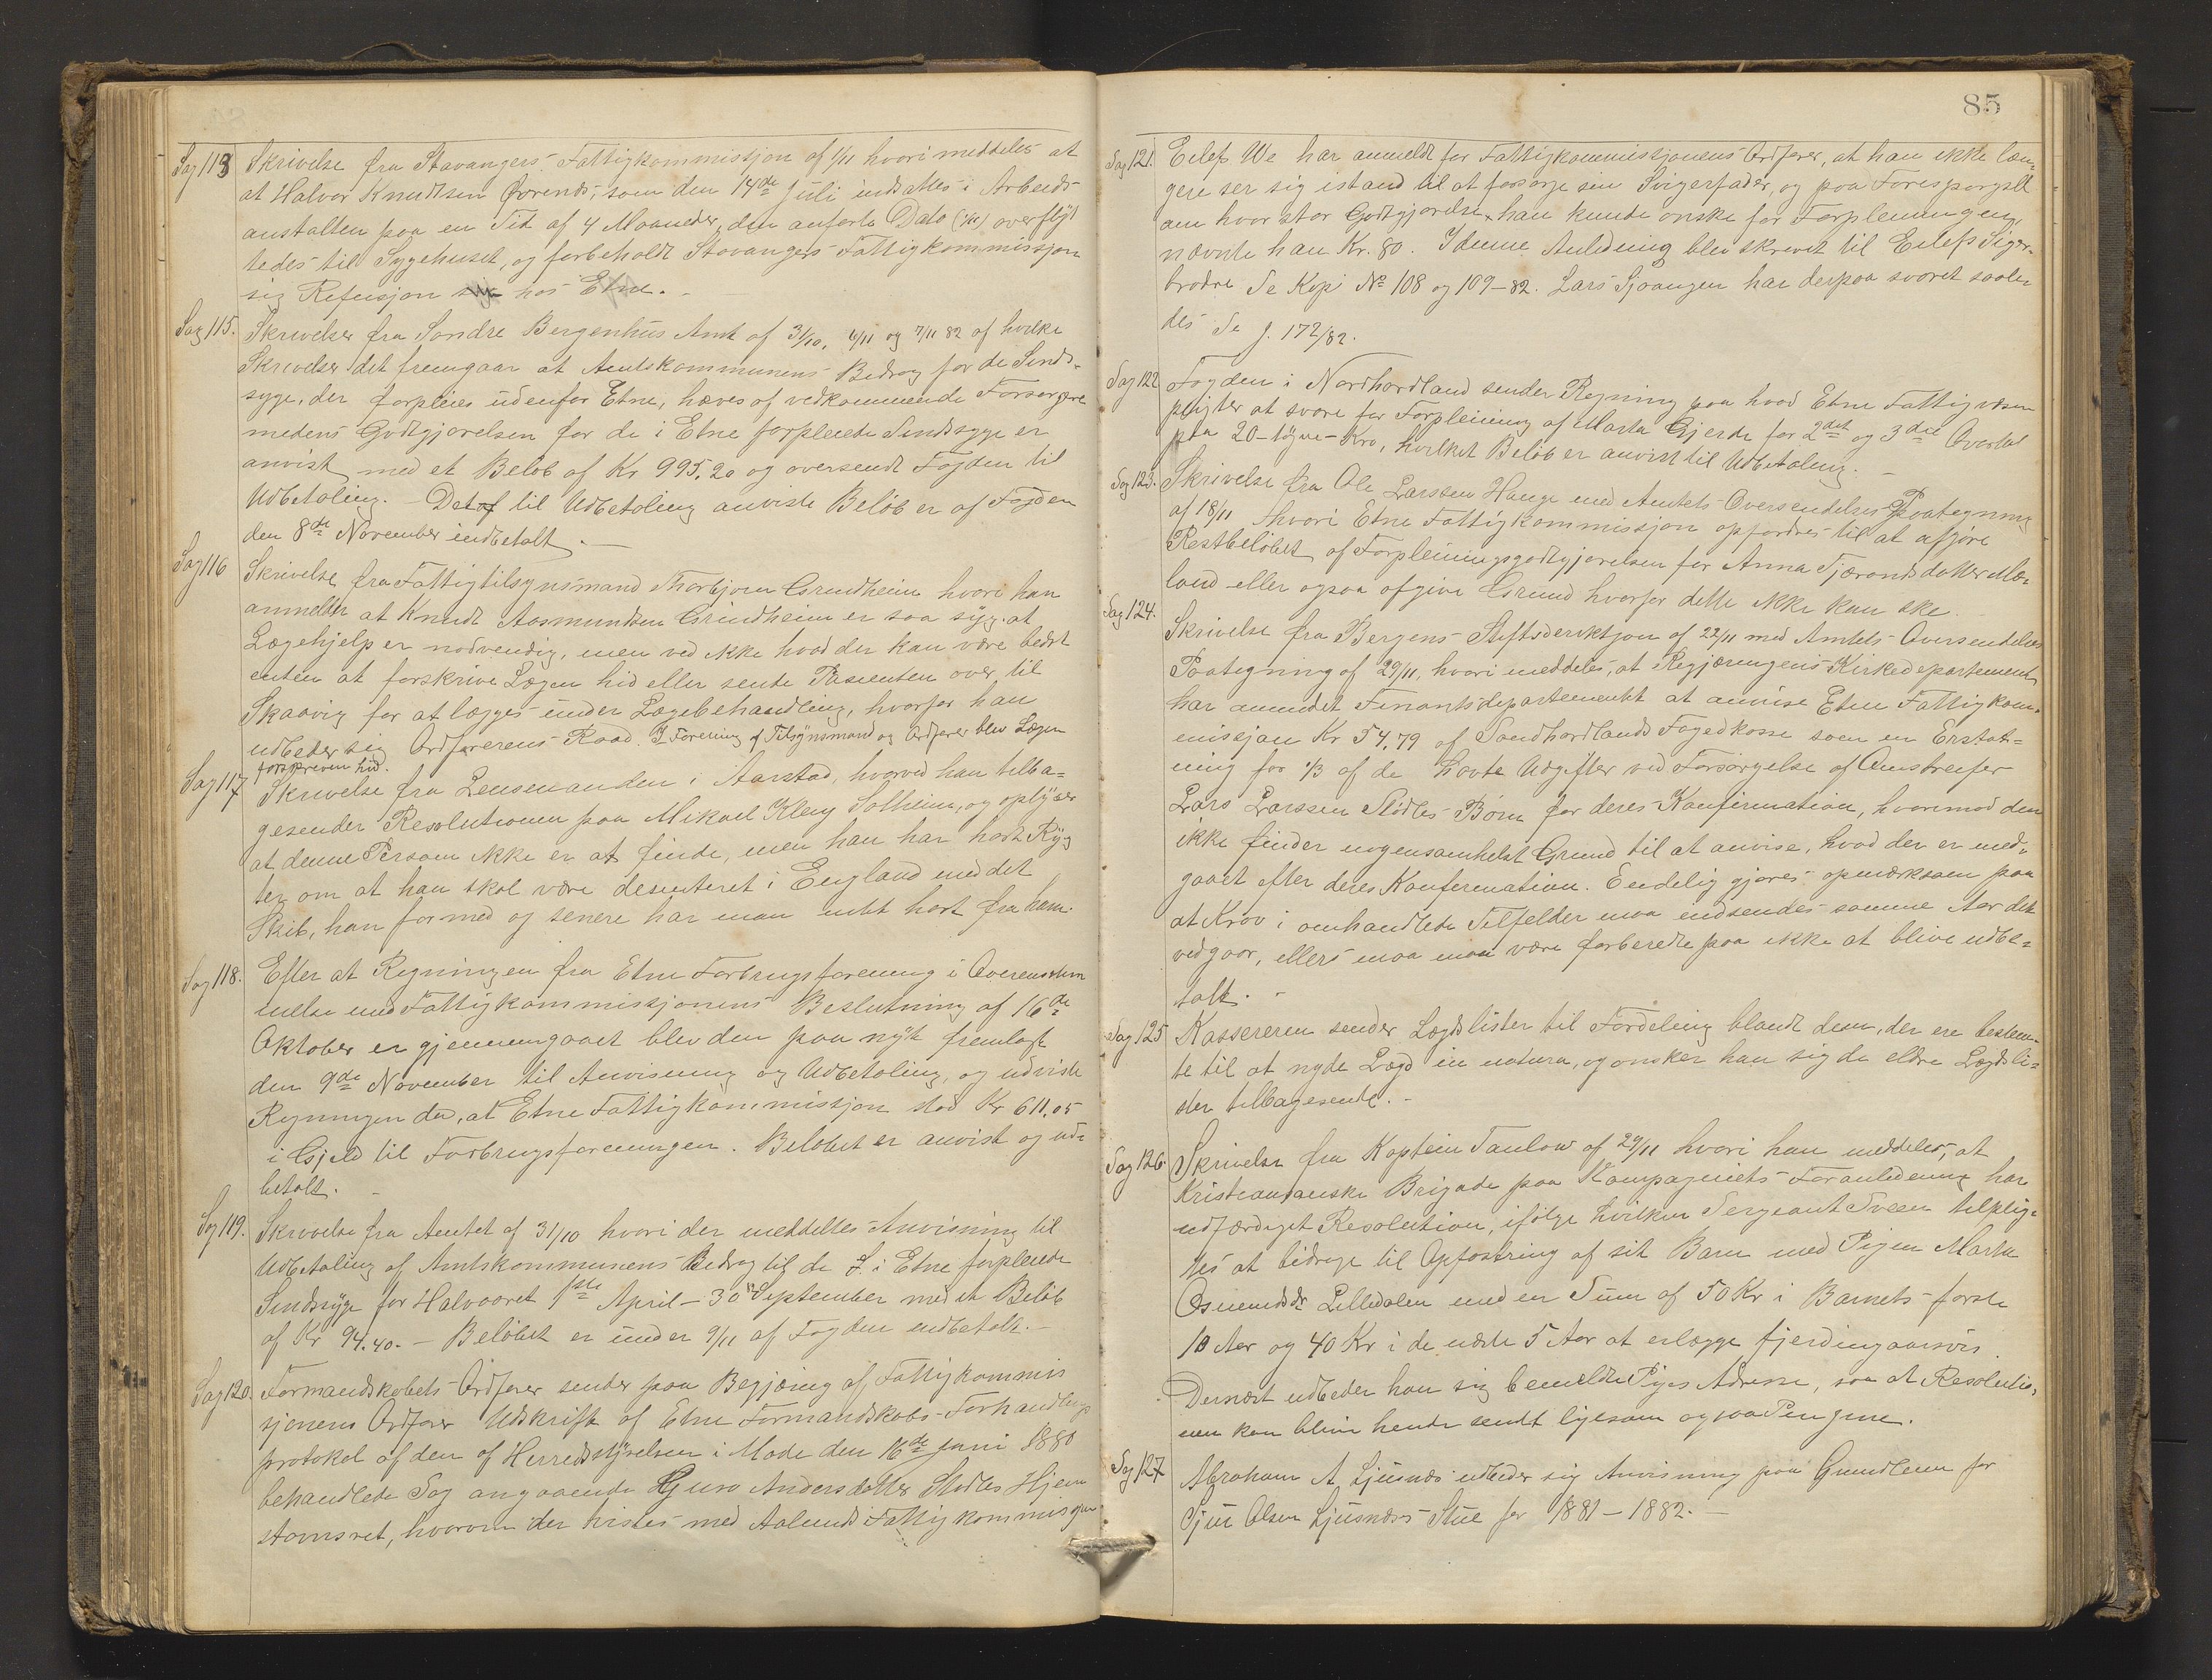 Sag 113 Skrivelse fra Stavangers Fattigkommissjon af 1/11 hvori meddeles at
at Halvor Knudtsen Øvrends, som den 14de Juli indsattes i Arbeids-
anstalten paa en Tid af 4 Maaneder, den anførte Dato (1/11) overflyt
tedes til Sygehuset, og forbeholdt Stavangers Fattigkommissjon
sig Refusjon hos Etne.
Sag 115. Skrivelser fra Søndre Bergenhus Amt af 31/10, 4/11 og 7/11 82 af hvilke
Skrivelser det fremgaar at Amtskommunens Bidrag for de Sinds-
syge, der forpleies udenfor Etne, hæves af vedkommende Forsørgere
medens Godtgjørelsen for de i Etne forpleiede Sindssyge er
anvist med et Beløb af Kr 995,20 og oversendt Fogden til
Udbetaling. Det til Udbetaling anviste Beløb er af Fogden
den 8de November indbetalt.
Sag 116 Skrivelse fra Fattigtilsynsmand Thorbjørn Grindheim hvori han
anmelder at Knudt Aasmundsen Grindheim er saa syg, at
Lægehjelp er nødvendig, men ved ikke hvad der kan være bedst
enten at forskrive Lægen hid eller sende Pasienten over til
Skaavig for at lægges under Lægebehandling, hvorfor han
udbeder sig Ordførerens Raad. I Forening af Tilsynsmand og Ordfører blev Lægen
forskreven hid.
Sag 117 Skrivelse fra Lensmanden i Aarstad, hvorved han tilba=
gesender Resolutionen paa Mikael Kleng Solheim, og oplyser
at denne Person ikke er at finde, men han har hørt Ryg
ter om at han skal være deserteret i England med det
Skib, han for med og senere har man intet hørt fra ham.
Sag 118. Efter at Regningen fra Etne Forbrugsforening i Overensstem
melse med Fattigkommissjonens Beslutning af 16de
Oktober er gjennemgaaet blev den paa nyt fremlagt
den 9de November til Anvisning og Udbetaling, og udviste
Regningen da, at Etne Fattigkommissjon stod Kr 611.05
i Gjeld til Forbrugsforeningen. Beløbet er anvist og ud=
betalt.
Sag 119. Skrivelse fra Amtet af 31/10 hvori der meddeltes Anvisning til
Udbetaling af Amtskommunens Bidrag til de i Etne forpleiede
Sindssyge for Halvaaret 1ste April – 30te September med et Beløb
af Kr 94.40. – Beløbet er under 9/11 af Fogden indbetalt. –
Sag 120. Formandskabets Ordfører sender paa Begjæring af Fattigkommis
sjonens Ordfører Udskrift af Etne Formandskabs-Forhandlings
protokol af den af Herredsstyrelsen i Møde den 16de Juni 1880
behandlede Sag angaaende Guro Andersdatter Stødles Hjem
stavnsret, hvorom der tvistes med Aalunds Fattigkommissjon
85
Sag 121. Eilef We har anmeldt for Fattigkommissjonens Ordfører, at han ikke læn-
gere ser sig istand til at forsørge sin Svigerfader, og paa Forespørgsel
om hvor stor Godtgjørelse han kunde ønske for Forpleiningen,
nævnte han Kr. 80. I denne Anledning blev skrevet til Eilefs Svger-
brødre Se Kopi No 108 og 109–82. Lars Sjoangen har derpaa svaret saale
des Se J. 172/82.
Sag 122 Fogden i Nordhordland sender Regning paa hvad Etne Fattigvæsen
pligter at svare for Forpleining af Marta Gjerde for 2det og 3die Qvartal
paa 20 – tyve – Kro, hvilket Beløb er anvist til Udbetaling. –
Sag 123. Skrivelse fra Ole Larssen Hauge med Amtets Oversendelses Paategning
af 18/11 hvori Etne Fattigkommissjon opfordres til at afgjøre
Restbeløbet af Forpleiningsgodtgjørelsen for Anna Tjærandsdatter Mæ-
land eller ogsaa afgive Grund hvorfor dette ikke kan ske.
Sag 124. Skrivelse fra Bergens Stiftsdirektjon af 22/11 med Amtets Oversendelses
Paategning af 29/11, hvori meddeles, at Regjæringens Kirkedepartement
har anmodet Finantsdepartementet at anvise Etne Fattigkom-
missjon Kr 54,79 af Søndhordlands Fogedkasse som en Erstat=
ning for 1/3 af de havte Udgifter ved Forsørgelse af Omstreifer
Lars Larssen Stødles Børn før deres Konfirmation, hvorimod den
ikke finder nogensomhelst Grund til at anvise, hvad der er med-
gaaet efter deres Konfirmation. Endelig gjøres opmærksom paa
at Krav i omhandlede Tilfelder maa indsendes samme Aar det
vedgaar, ellers maa man være forberedte paa ikke at blive udbe=
talt. –
Sag 125 Kassereren sender Lægdslister til Fordeling blandt dem, der ere bestem-
te til at nyde Lægd in natura, og ønsker han sig de eldre Lægdsli=
ster tilbagesendt. –
Sag 126. Skrivelse fra Kaptein Taulow af 29/11 hvori han meddeler, at
Kristiansanske Brigade paa Kompagniets Foranledning har
udfærdiget Resolution, ifølge hvilken Sergeant Tveen tilplig-
tes at bidrage til Opfostring af sit Barn med Pigen Marta
Osmundsdr Lilledalen med en Sum af 50 Kr i Barnets første
10 Aar og 40 Kr i de næste 5 Aar at erlægge fjerdingaarsvis.
Dernæst udbeder han sig bemeldte Piges Adresse, saa at Resolutio-
nen kan blive hende sendt ligesom ogsaa Pengene.
Sag 127 Abraham A. Ljusnæs udbeder sig Anvisning paa Grundleien for
Sjur Olsen Ljusnæs's Stue for 1881 – 1882. –